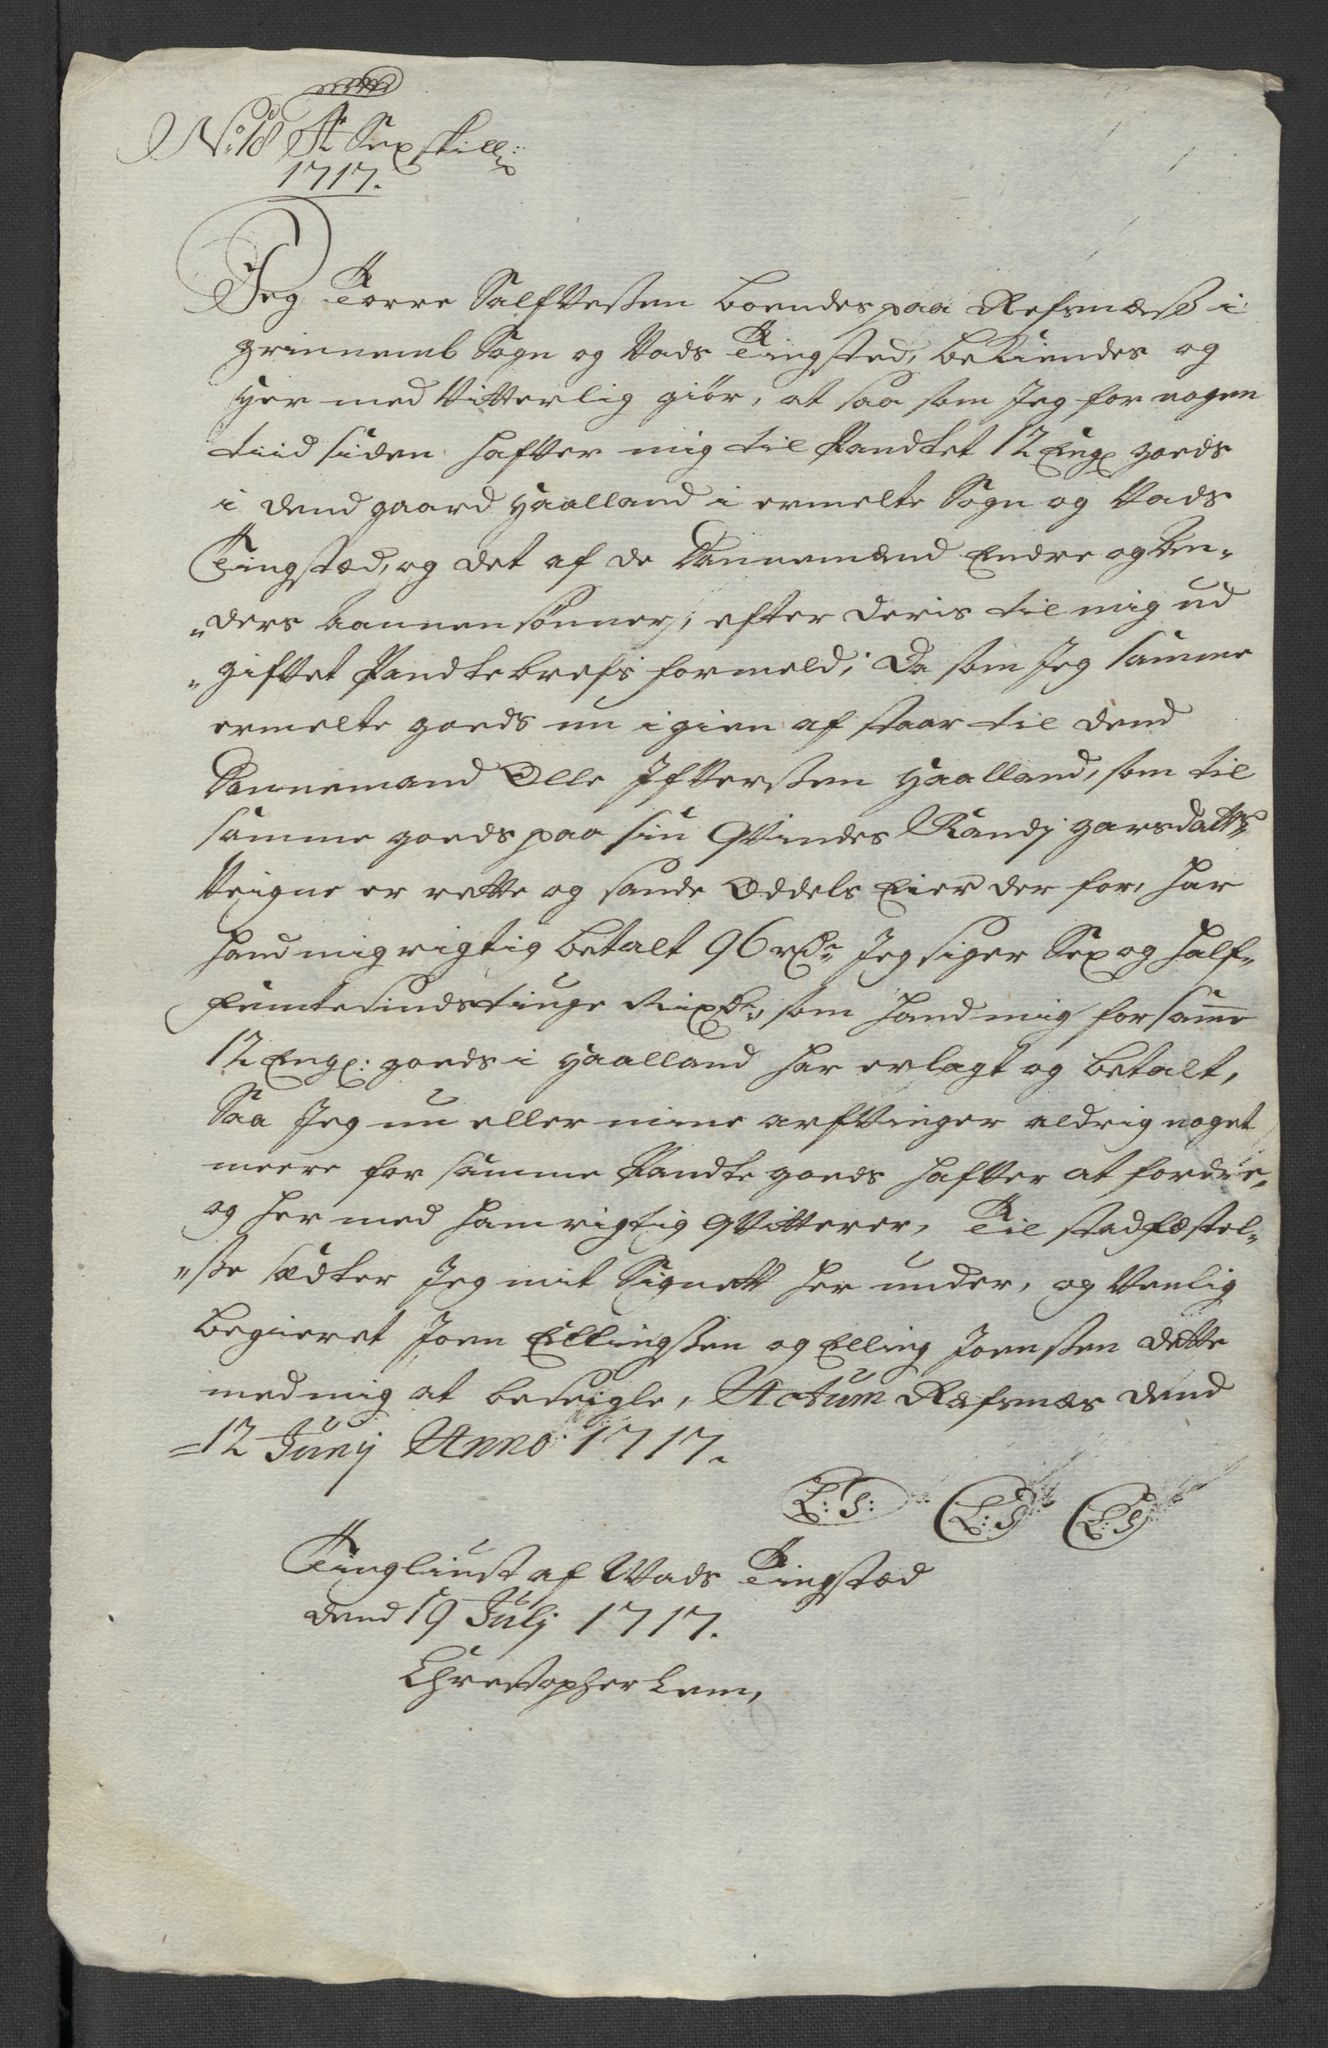 No 18 At Sex skill:
1717.
Jeg Torre Salfvesen boendes paa Refsnæss i
grinnemb Sogn og Vads Tingsted, bekiendes og
her med Vitterlig giør, at saa som Jeg for nogen
tiid siden hafver mig til Pandtet 12 Engl goeds
i dend gaard Haalland i ermelte Sogn og Vads
Tingstæd, og det af de Dannemænd Endre og An„
„ders Aannensønner, efter deris til mig ud
„gifvet Pandtebrefs formeld; Da som Jeg samme
ermelte goeds nu igien af staar til dend
Dannemand Olle Ifversen Haalland, som til
samme goeds paa sin Qvindes Randj garsdatters
Veigne er rette og sande Oddels Eier der for, har
hand mig rigtig betalt 96 rdr Jeg siger Sex og half„
femtesindstiuge Rixdr, som hand mig for samme
12 Engl: goeds i Haalland har erlagt og betalt,
Saa Jeg nu eller mine arfvinger aldrig noget
meere for samme Pandte goeds hafver at fordre,
og her med ham rigtig qvitterer, Til stadfæstel„
„sse sædter Jeg mit Signett her under, og venlig
begieret Joen Ellingssen og Elling Joenssen dette
med mig at beseigle, Actum Ræfsnæs dend
12 Junij Anno 1717.
L: S: L: S L: S
Tingliust af Vads Tingstæd
dend 19 Julj 1717.
Christopher Lem,